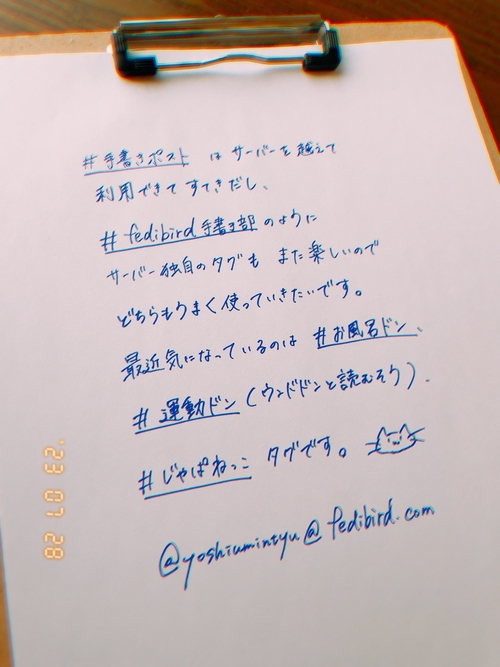 #手書きポスト は サーバーを越えて
利用できて すてきだし、
#fedibird手書き部 のように
サーバー独自のタグも また楽しいので
どちらもうまく使っていきたいです。
最近気になっているのは #お風呂ドン、
#運動ドン(ウンドドンと読むそう)、
#じゃぱねっこ タグです。
@yoshiumintyu@fedibird.com
'23 07 28